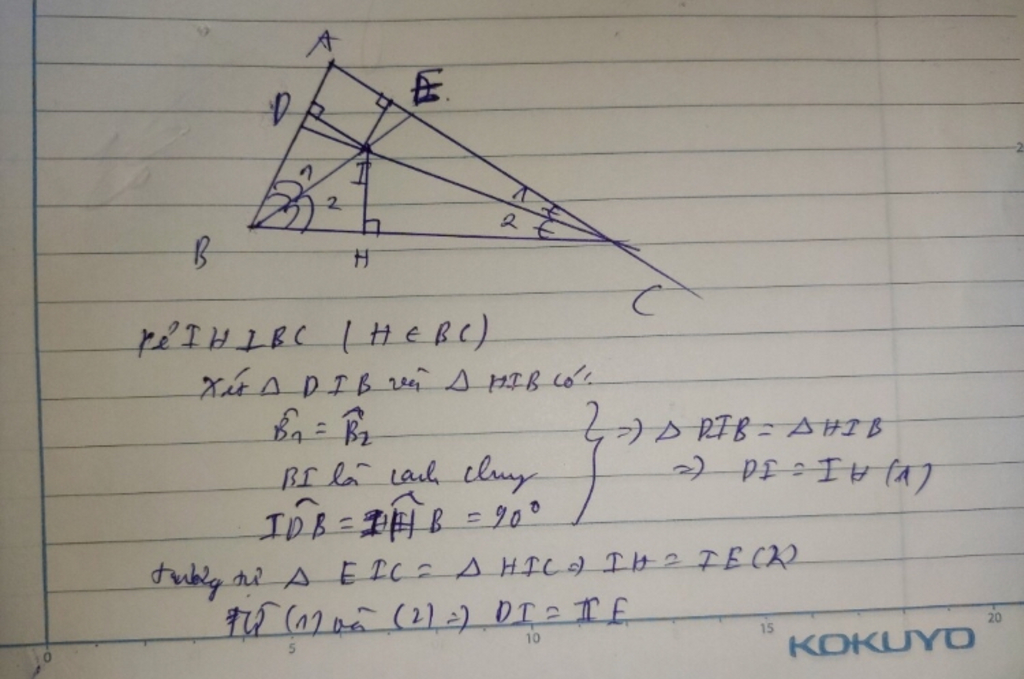 A
D
E
1
I
2
1
2
B
H
C
Kẻ IH ⊥ BC (H ∈ BC)
Xét Δ DIB và Δ HIB có:
B̂₁ = B̂₂
BI là cạnh chung
ID̂B = IĤB = 90°
} => Δ DIB = Δ HIB
=> DI = IH (1)
tương tự Δ EIC = Δ HIC => IH = IE (2)
Từ (1) và (2) => DI = IE
2
0
5
10
15
20
KOKUYO